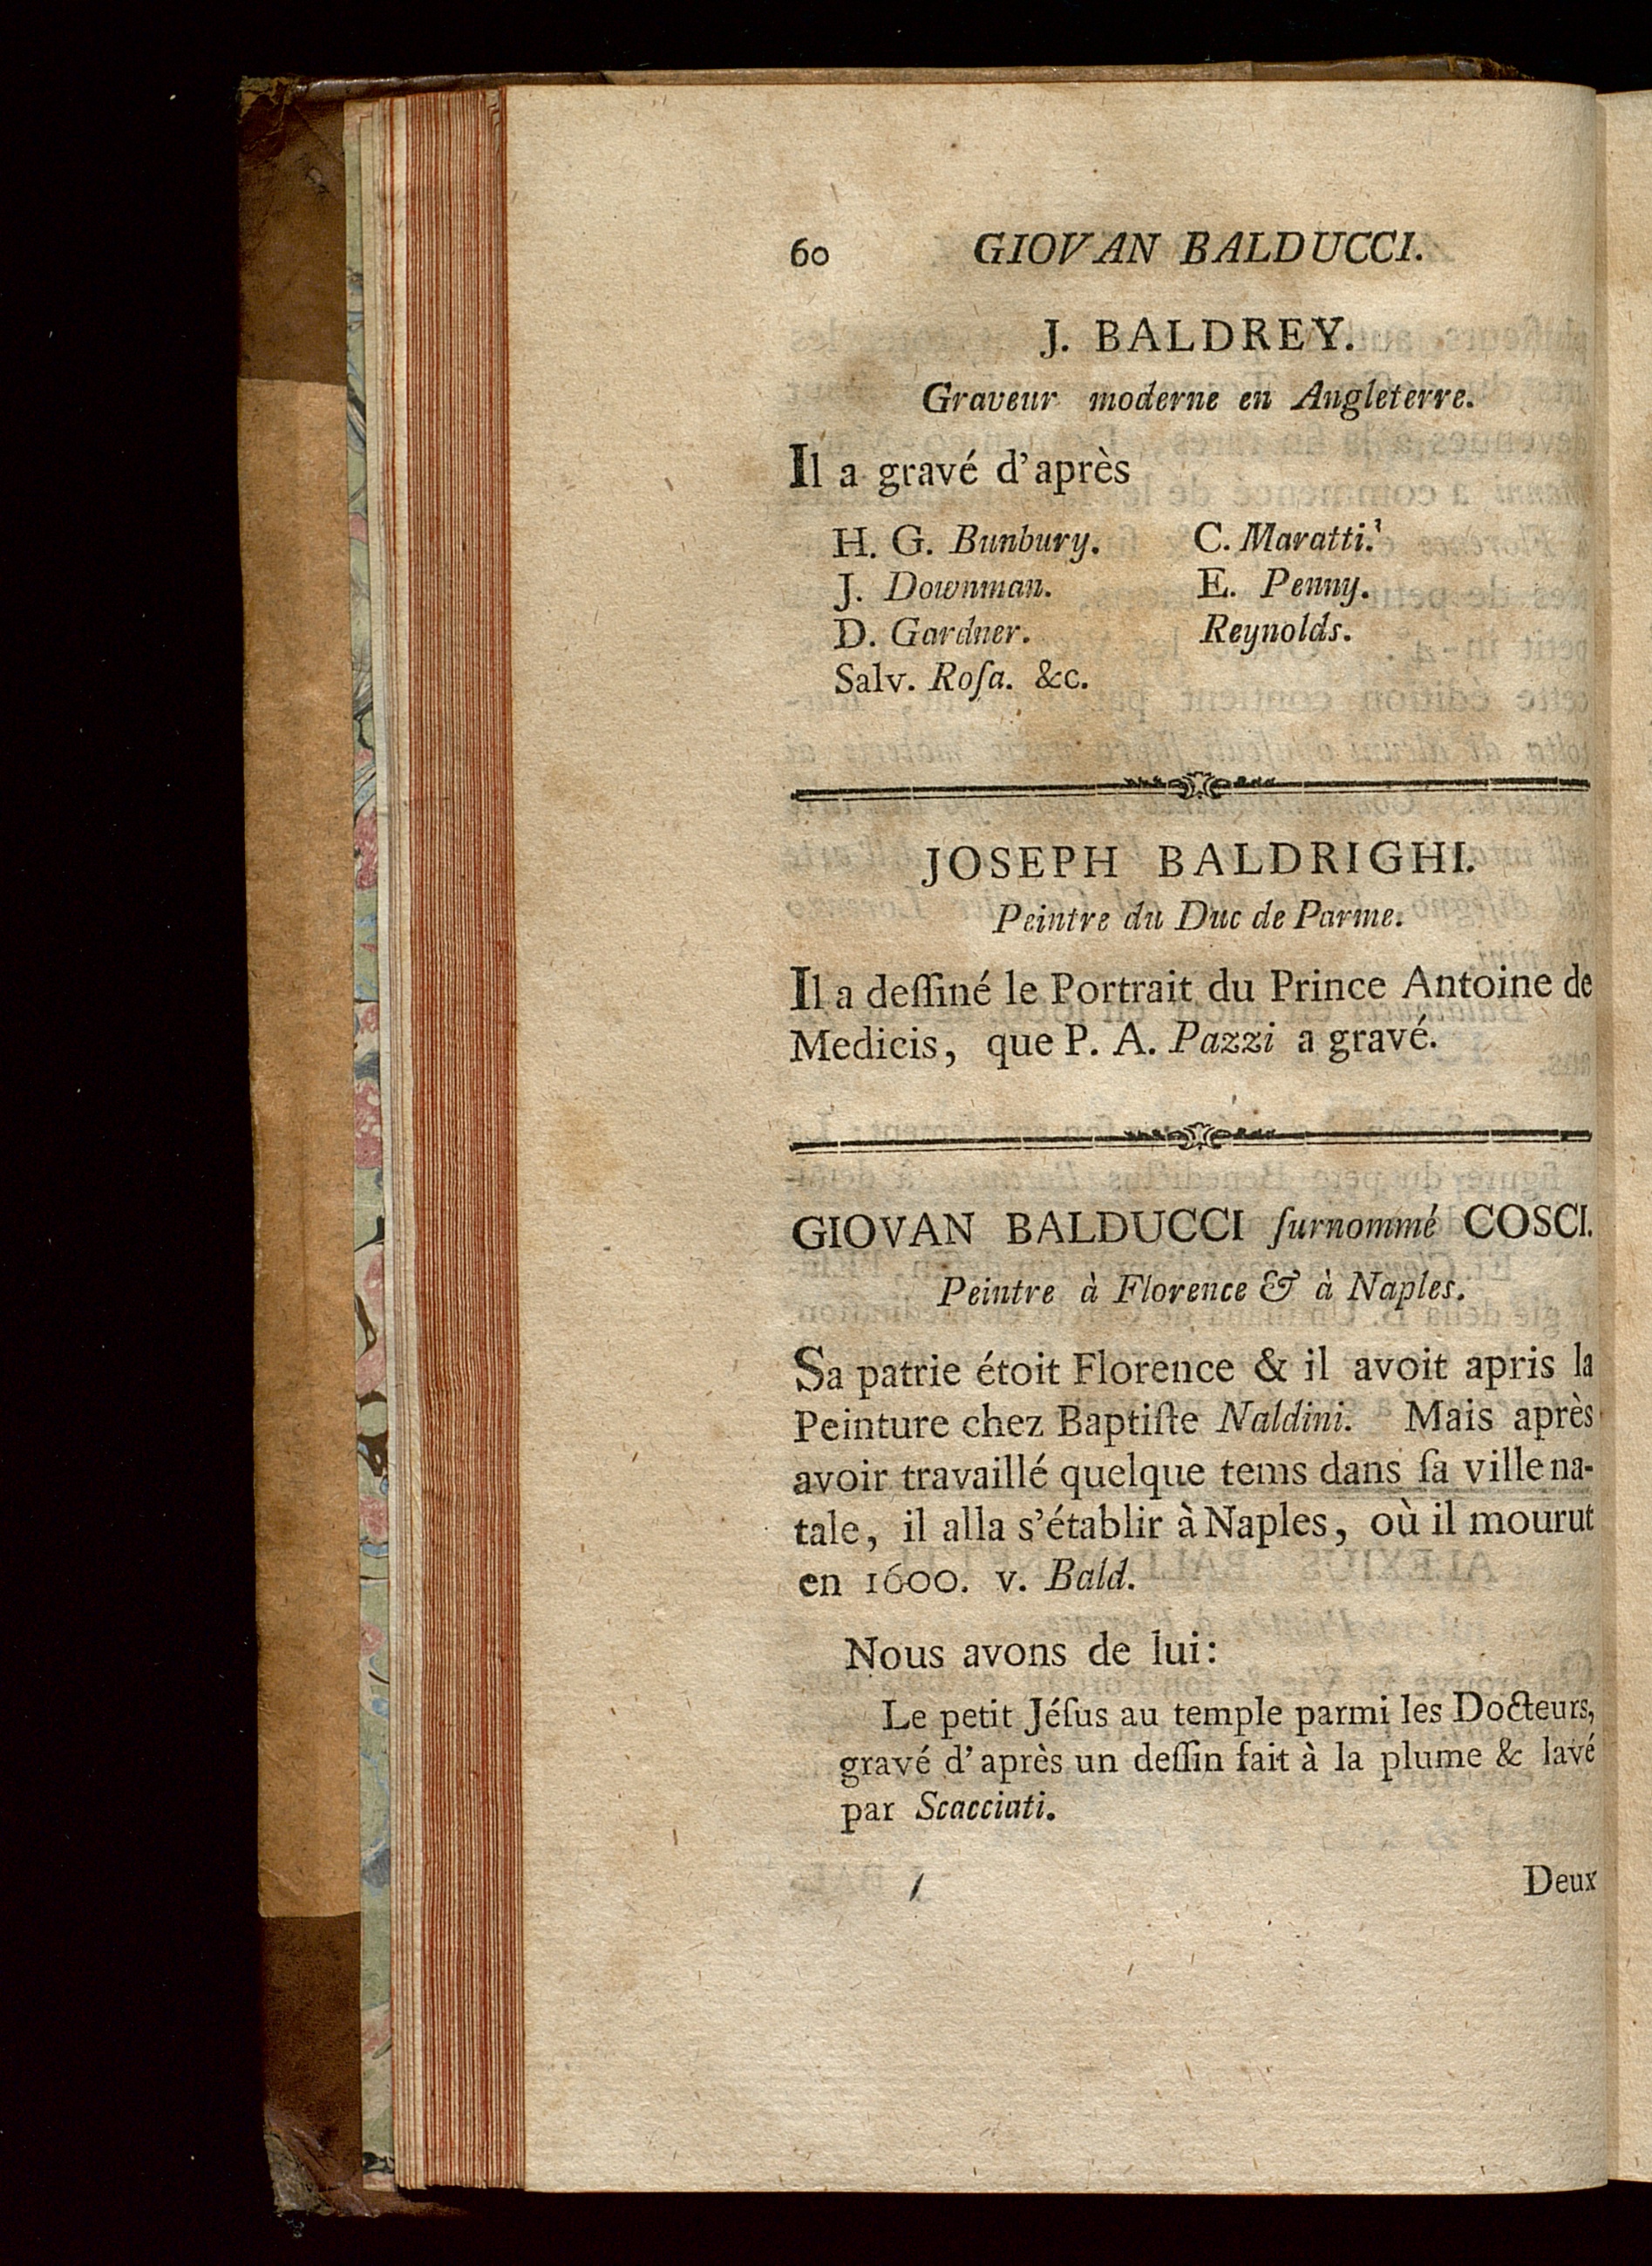 60 GIOVAN BALDUCCI.
J. BALDREY.
Graveur moderne en Angleterre.
Il a gravé d'après
H. G. Bunbury. C. Maratti.
J. Downman. E. Penny.
D. Gardner. Reynolds.
Salv. Roſa. &c.
JOSEPH BALDRIGHI.
Peintre du Duc de Parme.
Il a deſſiné le Portrait du Prince Antoine de
Medicis, que P. A. Pazzi a gravé.
GIOVAN BALDUCCI ſurnommé COSCI.
Peintre à Florence & à Naples.
Sa patrie étoit Florence & il avoit apris la
Peinture chez Baptiſte Naldini. Mais après
avoir travaillé quelque tems dans ſa ville na-
tale, il alla s'établir à Naples, où il mourut
en 1600. v. Bald.
Nous avons de lui:
Le petit Jéſus au temple parmi les Docteurs,
gravé d'après un deſſin fait à la plume & lavé
par Scacciati.
Deux